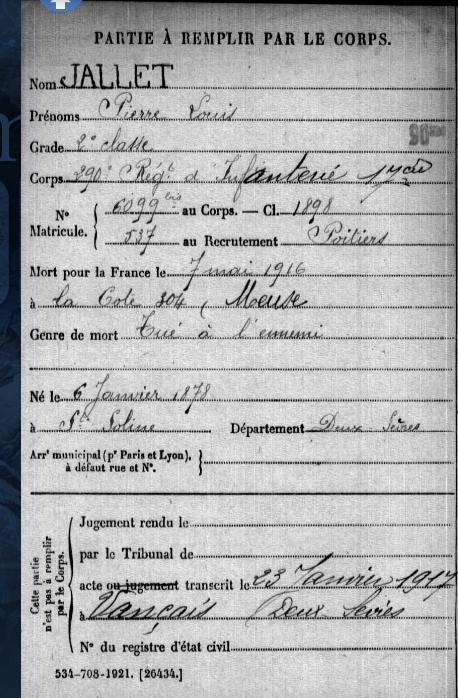 PARTIE À REMPLIR PAR LE CORPS.
Nom JALLET
Prénoms Pierre Louis
Grade 2e classe
Corps 290e Régt d'Infanterie 17cie
N° Matricule. 6099bis au Corps. — Cl. 1898
537 au Recrutement Poitiers
Mort pour la France le 7 mai 1916
à la Cote 304 (Meuse
Genre de mort Tué à l'ennemi
Né le 6 Janvier 1878
à Ste Soline Département Deux Sèvres
Arrt municipal (pr Paris et Lyon), à défaut rue et N°.
Cette partie n'est pas à remplir par le Corps.
Jugement rendu le
par le Tribunal de
acte ou jugement transcrit le 23 Janvier 1917
à Vançais (Deux Sèvres
N° du registre d'état civil
534-708-1921. [26434.]